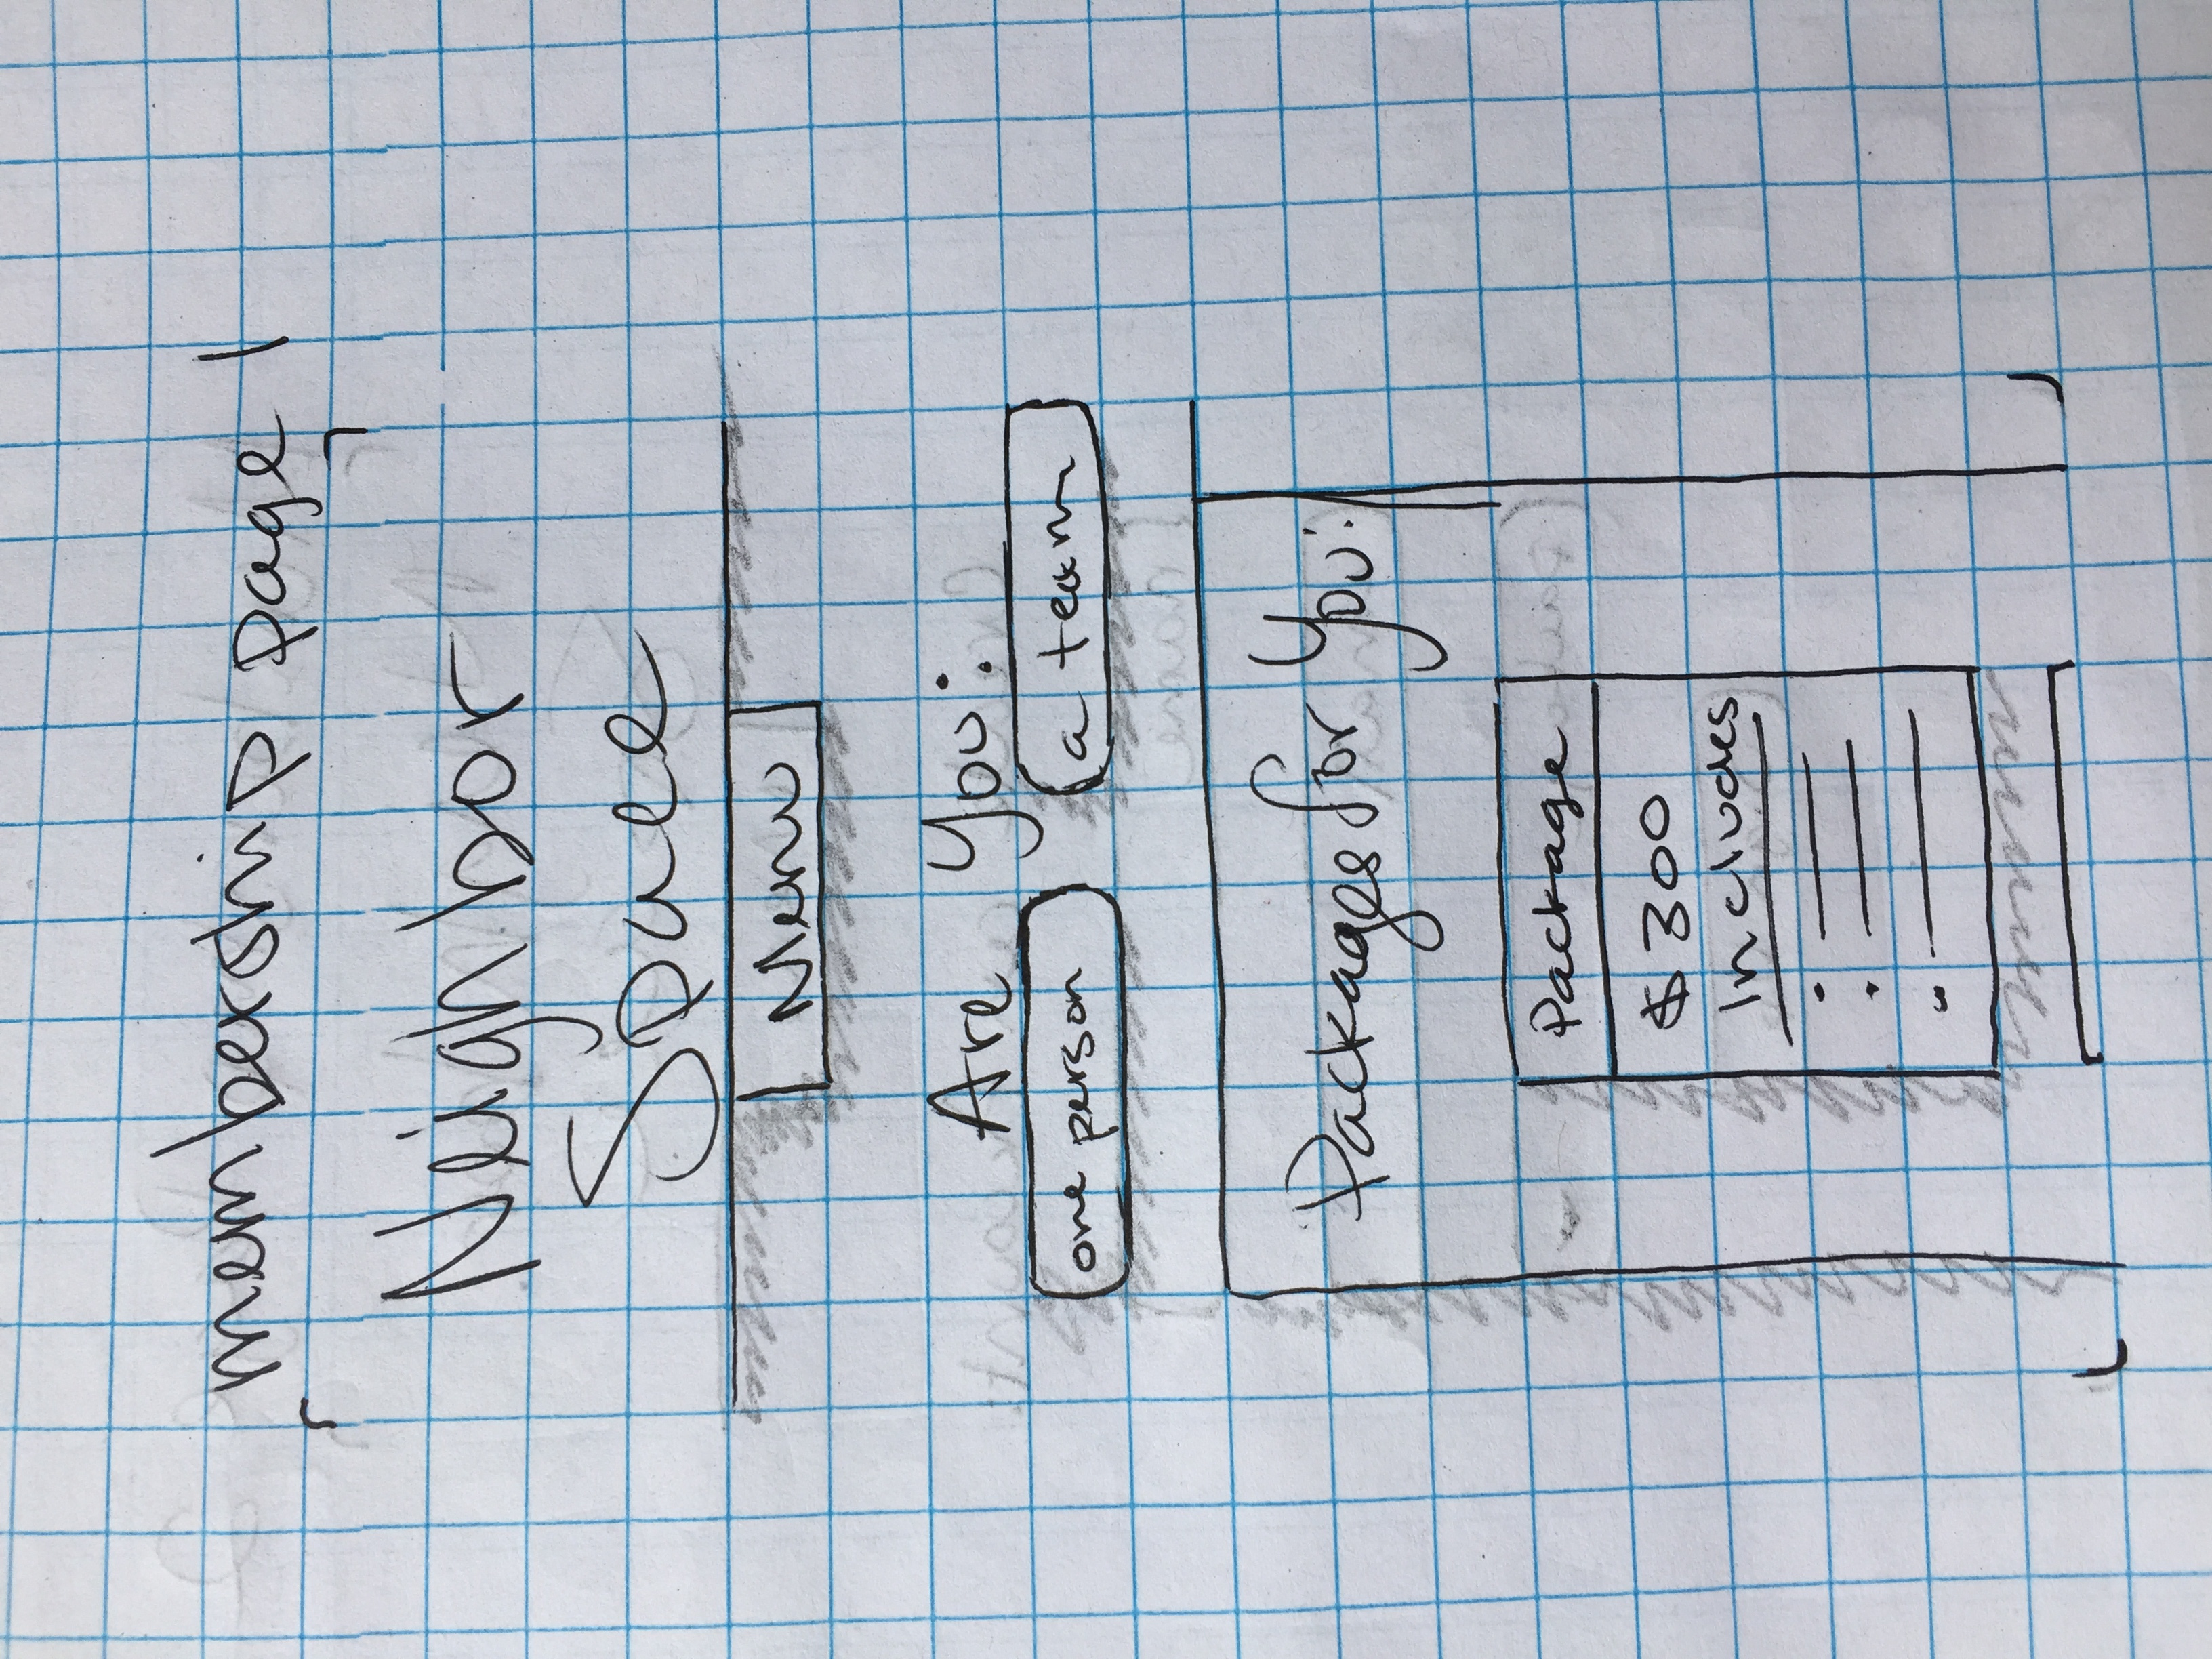 membership page 1
Neighbor
Space
Menu
Are You:
one person
a team
Packages for You:
Package
$300
Includes